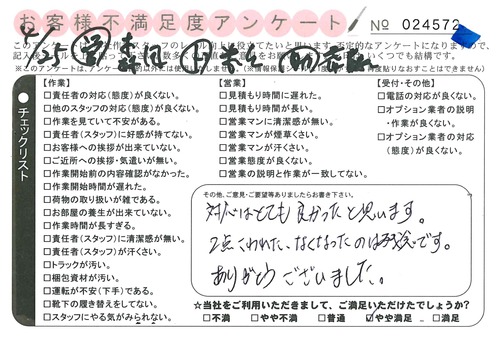 お客様不満足度アンケート
№ 024572
チェックリスト
【作業】
□責任者の対応(態度)が良くない。
□他のスタッフの対応(態度)が良くない。
□作業を見ていて不安がある。
□責任者(スタッフ)に好感が持てない。
□お客様への挨拶が出来ていない。
□ご近所への挨拶・気遣いが無い。
□作業開始前の内容確認がなかった。
□作業開始時間が遅れた。
□荷物の取り扱いが雑である。
□お部屋の養生が出来ていない。
□作業時間が長すぎる。
□責任者(スタッフ)に清潔感が無い。
□責任者(スタッフ)が汗くさい。
□トラックが汚い。
□梱包資材が汚い。
□運転が不安(下手)である。
□靴下の履き替えをしてない。
□スタッフにやる気がみられない。
【営業】
□見積もり時間に遅れた。
□見積もり時間が長い。
□営業マンに清潔感が無い。
□営業マンが煙草くさい。
□営業マンが汗くさい。
□営業態度が良くない。
□営業の説明と作業が一致してない。
【受付・その他】
□電話の対応が良くない。
□オプション業者の説明
・作業が良くない。
□オプション業者の対応
(態度)が良くない。
その他、ご意見・ご要望等ありましたらお書き下さい。
対応はとても良かったと思います。
2点こわれた、なくなったのは残念です。
ありがとうございました。
☆当社をご利用いただきまして、ご満足いただけたでしょうか?
□不満 □やや不満 □普通 ☑やや満足 □満足